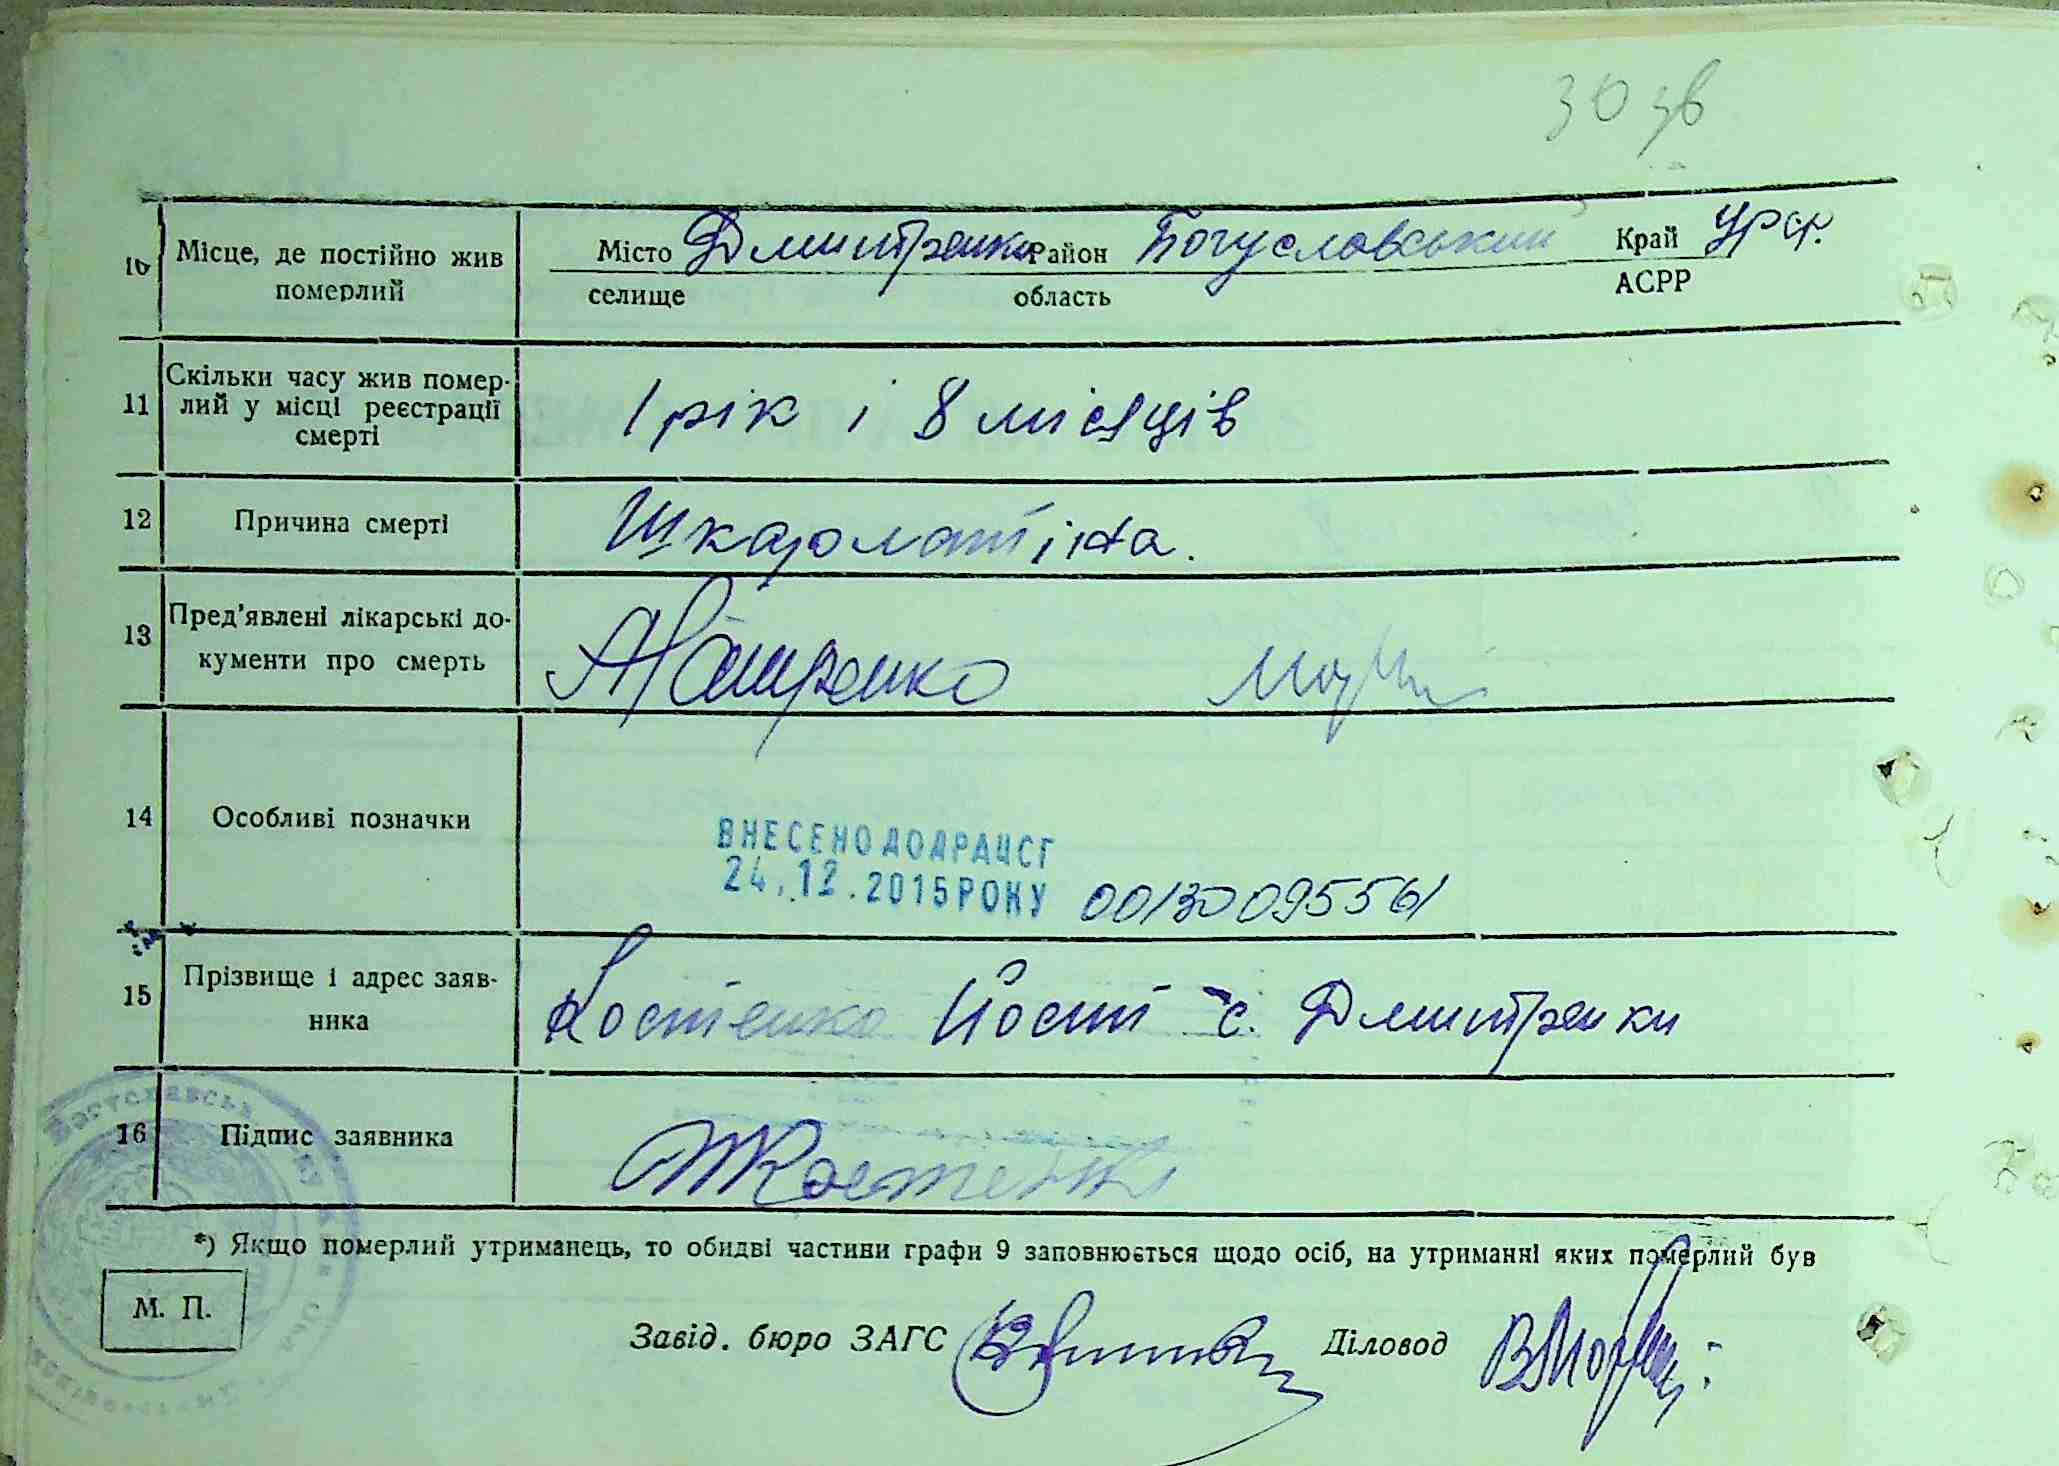 30 зв
10 Місце, де постійно жив померлий Місто селище Дмитренки Район область Богуславський Край АСРР УРСР.
11 Скільки часу жив помер-
лий у місці реєстрації
смерті 1 рік і 8 місяців
12 Причина смерті Шкарлатіна.
13 Пред'явлені лікарські до-
кументи про смерть
14 Особливі позначки
ВНЕСЕНО ДО ДРАЦСГ
24.12.2015 РОКУ 00130095561
15 Прізвище і адрес заяв-
ника Костенко Йосип с. Дмитренки
16 Підпис заявника Костенко
*) Якщо померлий утриманець, то обидві частини графи 9 заповнюється щодо осіб, на утриманні яких померлий був
М. П.
Завід. бюро ЗАГС Діловод